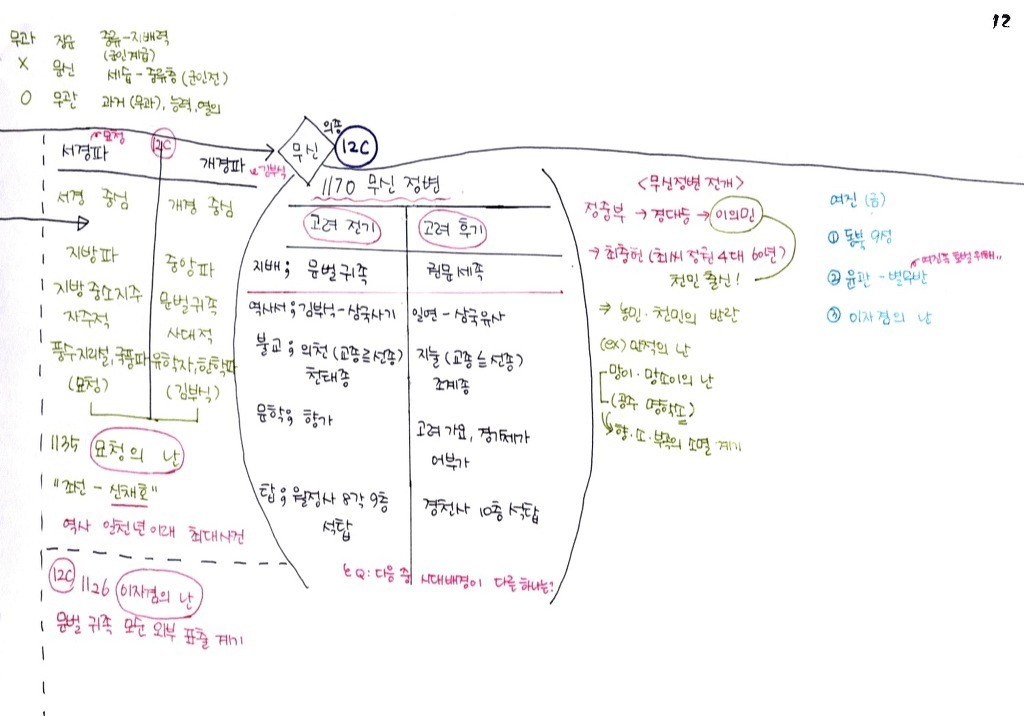 12
무과 장군 중류-지배력
(군인계급)
X 문신 세습-중류층(군인전)
O 무관 과거(무과), 능력, 열의
묘청
서경파 12C 개경파
김부식
서경 중심 개경 중심
지방파 중앙파
지방 중소지주 문벌귀족
자주적 사대적
풍수지리설, 국풍파 유학자, 한학파
(묘청) (김부식)
1135 묘청의 난
"조선-신채호"
역사 일천년이래 최대사건
12C 1126 이자겸의 난
문벌 귀족 모순 외부 표출 계기
무신 의종 12C
1170 무신 정변
고려 전기 고려 후기
지배; 문벌귀족 권문세족
역사서; 김부식-삼국사기 일연-삼국유사
불교; 의천(교종≥선종) 지눌(교종≤선종)
천태종 조계종
문학; 향가
고려가요, 경기체가
어부가
탑; 월정사 8각 9층 경천사 10층 석탑
석탑
Q: 다음 중 시대배경이 다른 하나는?
<무신정변 전개>
정중부 → 경대승 → 이의민
→ 최충헌(최씨 정권 4대 60년)
천민 출신!
⇒ 농민·천민의 반란
(ex) 만적의 난
망이·망소이의 난
(공주 명학소)
향·소·부곡의 소멸 계기
여진(금)
① 동북 9성
여진족 토벌 위해..
② 윤관-별무반
③ 이자겸의 난